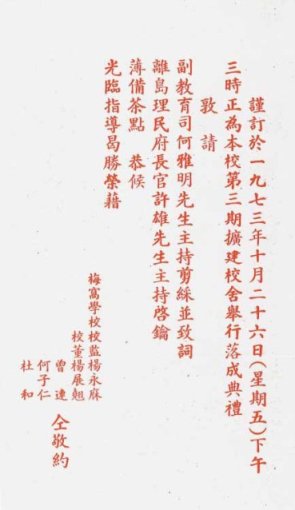 謹訂於一九七三年十月二十六日(星期五)下午
三時正為本校第三期擴建校舍舉行落成典禮
敦請
副教育司何雅明先生主持剪綵並致詞
離島理民府長官許雄先生主持啓鑰
薄備茶點 恭候
光臨指導曷勝榮藉
梅窩學校校監楊永庥
校董楊展翹
曾連
何子仁
杜和
仝敬約